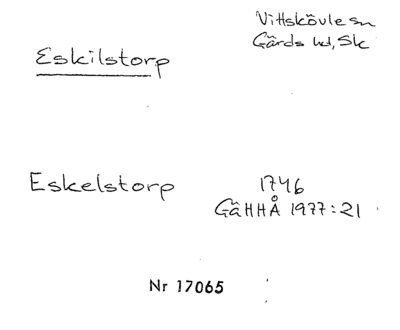 Vittskövle sn
Gärds hd, Sk
Eskilstorp
Eskelstorp
1746
GäHHÅ 1977:21
Nr 17065